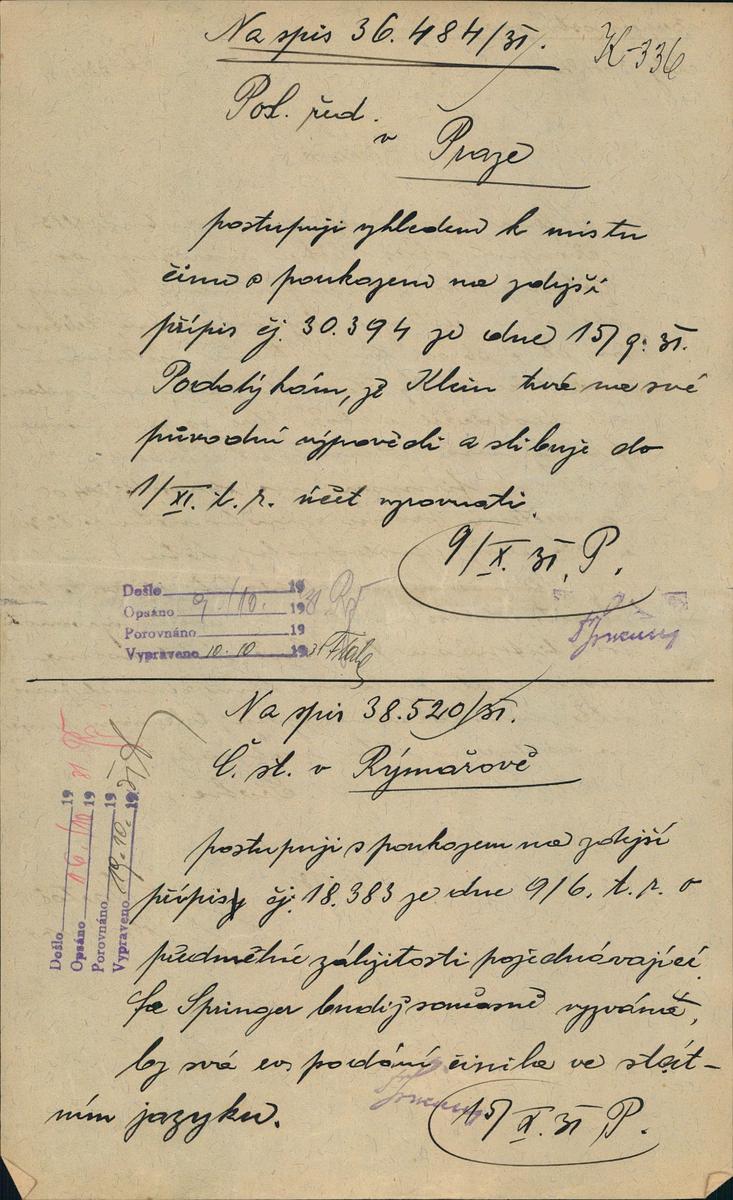 Na spis 36.484/31.
K-336
Pol. řed.
v Praze
postupuji vzhledem k místu
činu s poukazem na zdejší
přípis čj. 30.394 ze dne 15/9. 31.
Podotýkám, že Klein trvá na své
původní výpovědi a slibuje do
1/XI. t. r. účet vyrovnati.
9/X. 31. P.
Došlo 19
Opsáno 9./10. 1931
Porovnáno 19
Vypraveno 10.10 1931
Na spis 38.520/31.
Č. st. v Rýmařově
postupuji s poukazem na zdejší
přípis čj. 18.383 ze dne 9/6. t. r. o
předmětné záležitosti pojednávající.
Fa Springer budiž současně vyzvána,
by svá podání činila ve stát-
ním jazyku.
15/X. 31 P.
Došlo 19
Opsáno 16./10 1931
Porovnáno 19
Vypraveno 19.10. 19